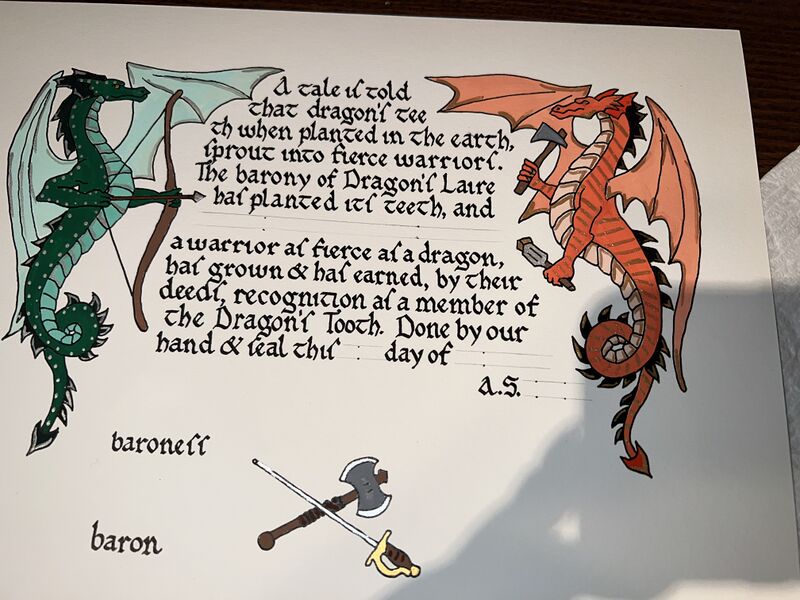 A tale iſ told
that dragon'ſ tee
th when planted in the earth,
ſprout into fierce warriorſ.
The barony of Dragon'ſ Laire
haſ planted itſ teeth, and
a warrior aſ fierce aſ a dragon,
haſ grown & haſ earned, by their
deedſ, recognition aſ a member of
the Dragon'ſ Tooth. Done by our
hand & ſeal thiſ day of
A.S.
baroneſſ
baron